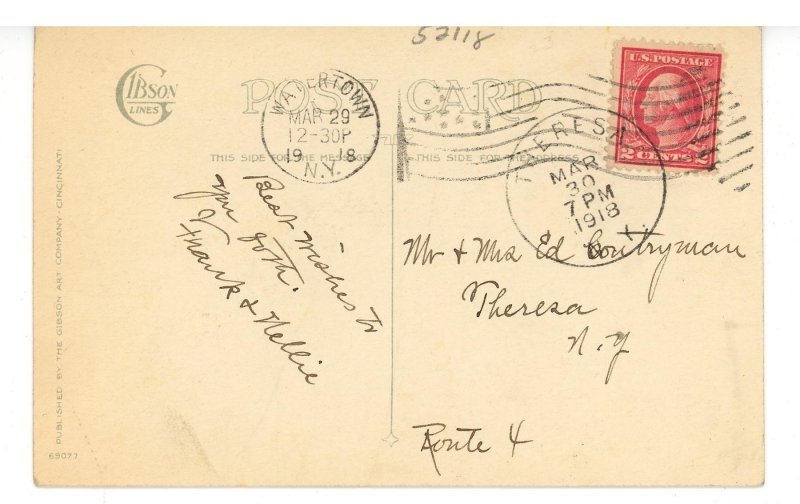 52118
GIBSON
LINES
POST CARD
THIS SIDE FOR THE MESSAGE
THIS SIDE FOR THE ADDRESS
WATERTOWN
MAR 29
12-30P
1918
N.Y.
U.S. POSTAGE
2 CENTS 2
THERESA
MAR
30
7 PM
1918
N.Y.
Best wishes to
you both.
Frank & Nellie
Mr & Mrs Ed Countryman
Theresa
N.Y
Route 4
PUBLISHED BY THE GIBSON ART COMPANY - CINCINNATI
69077